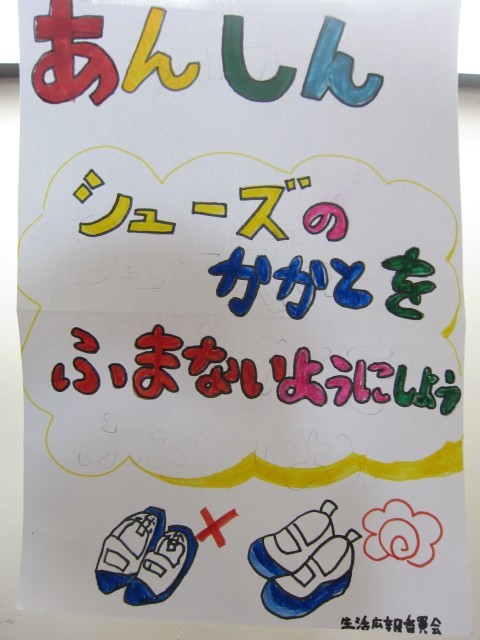 あんしん
シューズの
かかとを
ふまないようにしよう
生活広報委員会